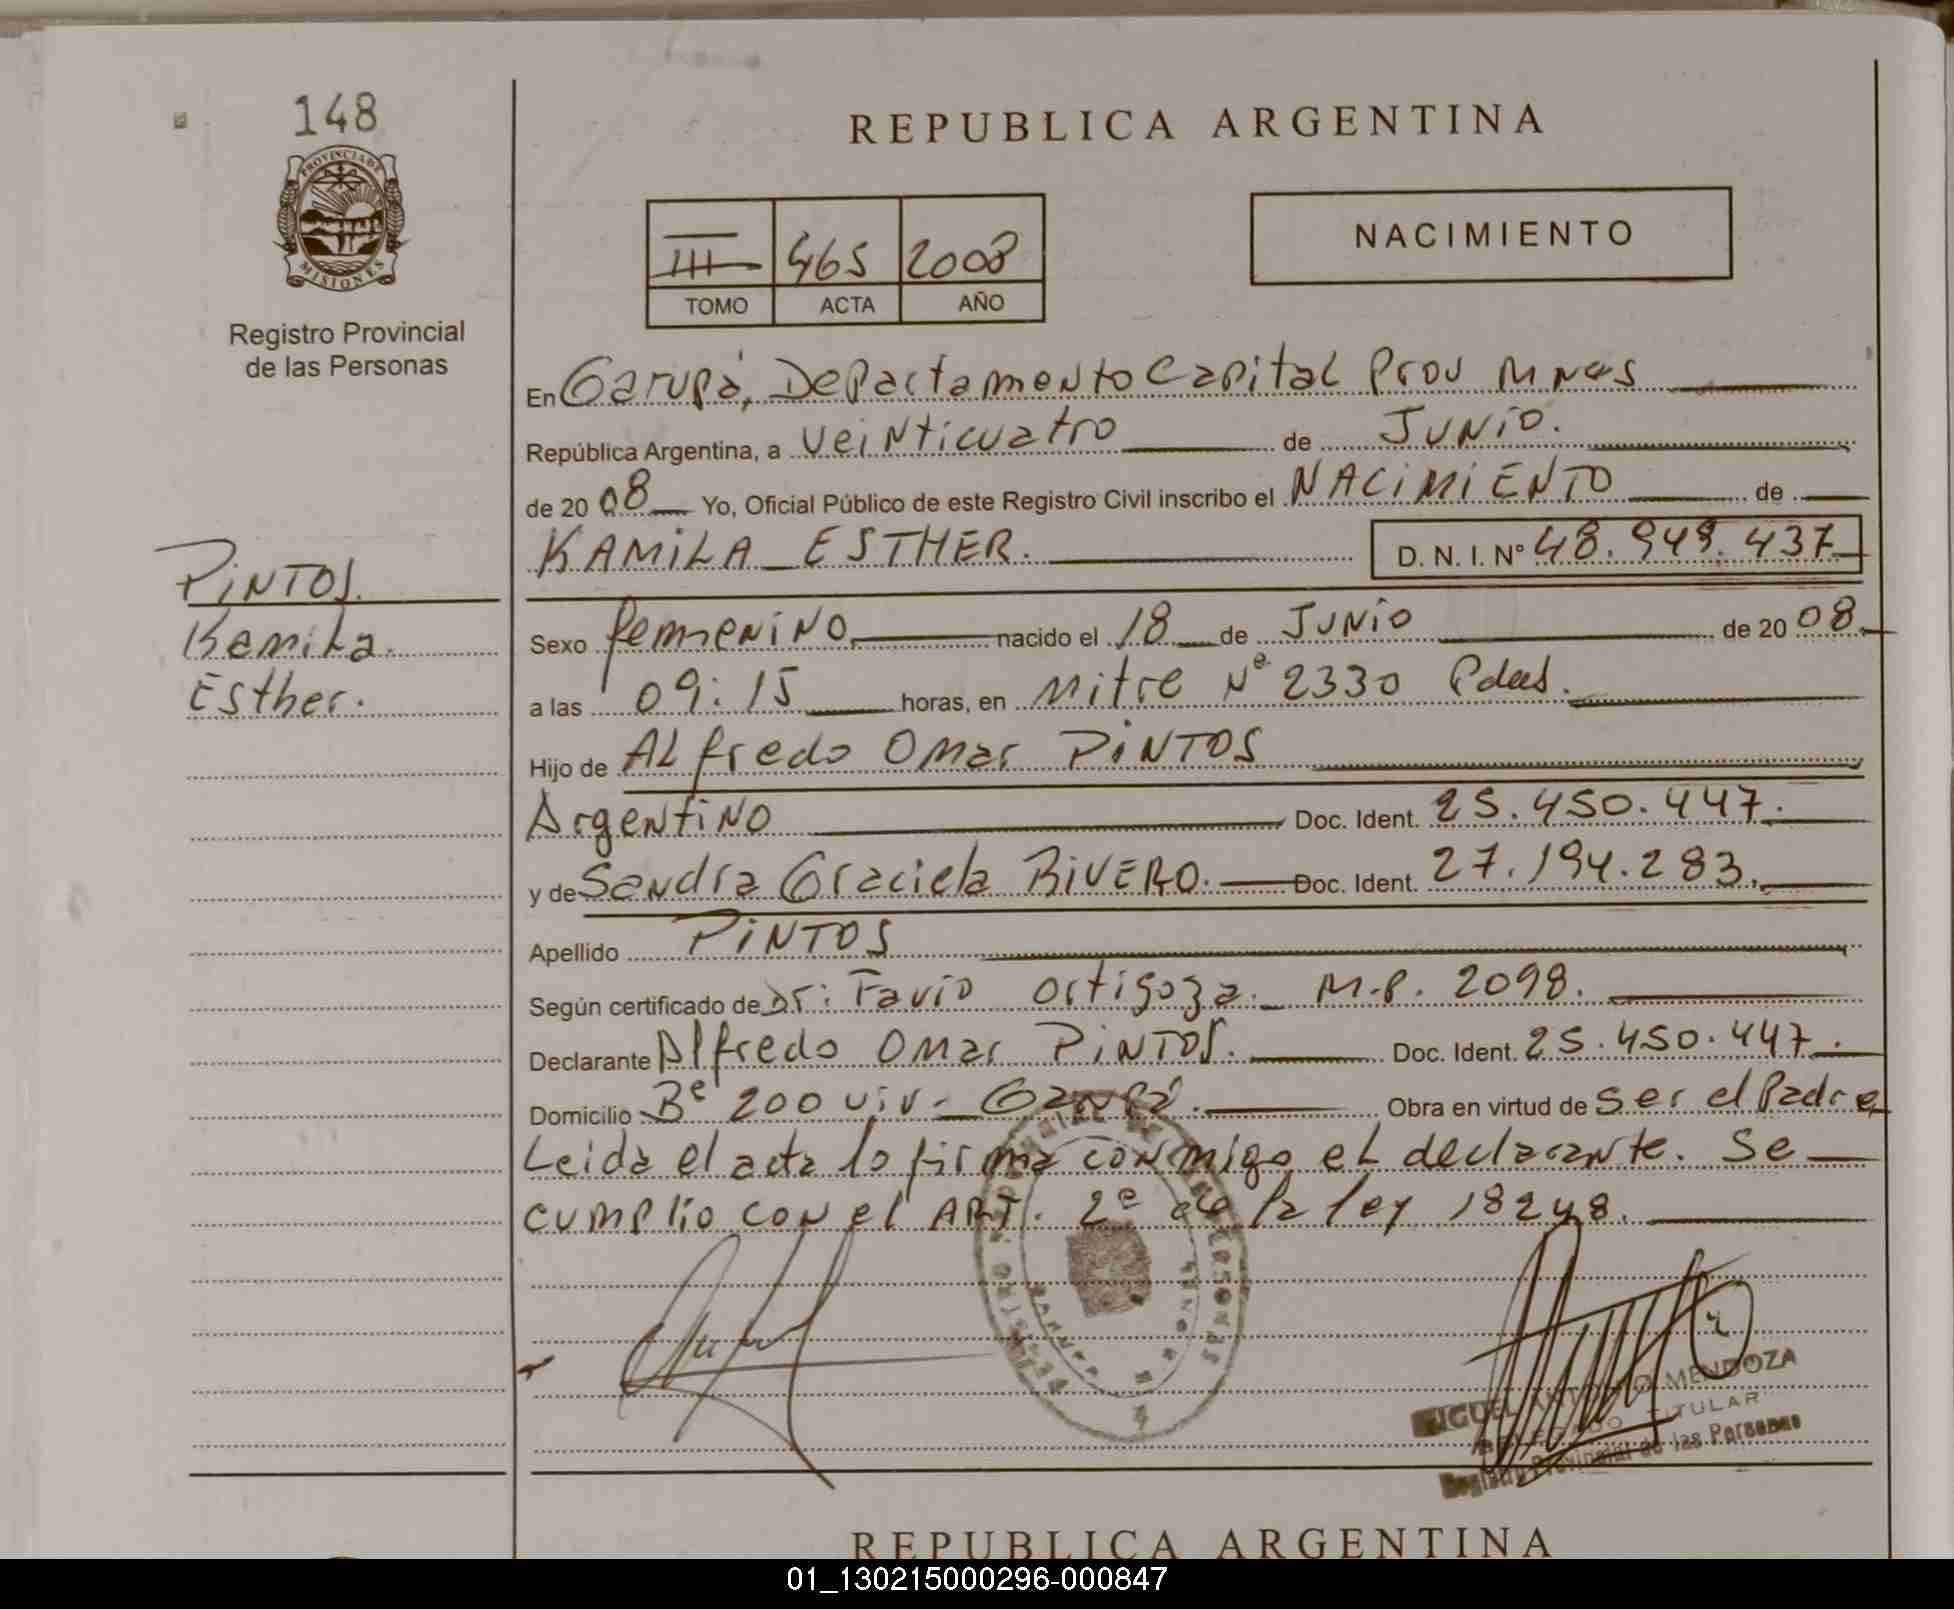 148
PROVINCIA DE
MISIONES
Registro Provincial
de las Personas
PINTOS.
Kamila.
Esther.
REPUBLICA ARGENTINA
III 465 2008
TOMO ACTA AÑO
NACIMIENTO
En Garupá, Departamento Capital Prov Mnes
República Argentina, a veinticuatro de JUNIO.
de 20 08 Yo, Oficial Público de este Registro Civil inscribo el NACIMIENTO de
KAMILA ESTHER. D. N. I. Nº 48.949.437
Sexo femenino nacido el 18 de JUNIO de 20 08.
a las 09:15 horas, en Mitre Nº 2330 Pdas.
Hijo de Alfredo Omar PINTOS
Argentino Doc. Ident. 25.450.447.
y de Sandra Graciela RIVERO. Doc. Ident. 27.194.283.
Apellido PINTOS
Según certificado de Dr: Favio Ortigoza. M.P. 2098.
Declarante Alfredo Omar PINTOS. Doc. Ident. 25.450.447.
Domicilio Bº 200 viv - Garupá. Obra en virtud de ser el Padre
Leida el acta lo firma conmigo el declarante. Se
cumplio con el ART. 2º de la ley 18248.
MIGUEL ANTONIO MENDOZA
DELEGADO TITULAR
Registro Provincial de las Personas
REPUBLICA ARGENTINA
01_130215000296-000847